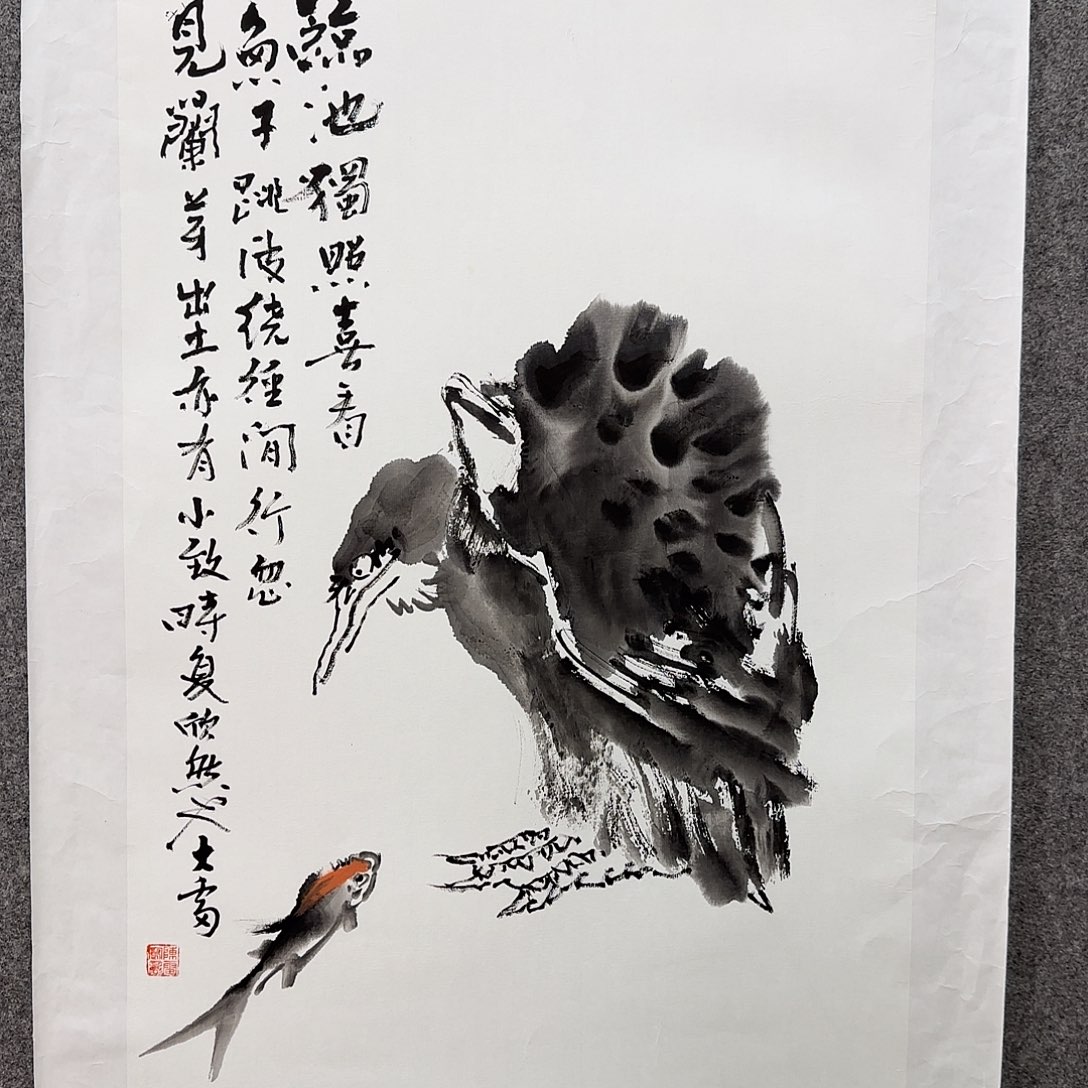 臨池獨照喜看
魚子跳波繞徑閒行忽
見蘭芽出土亦有小致時复欣然